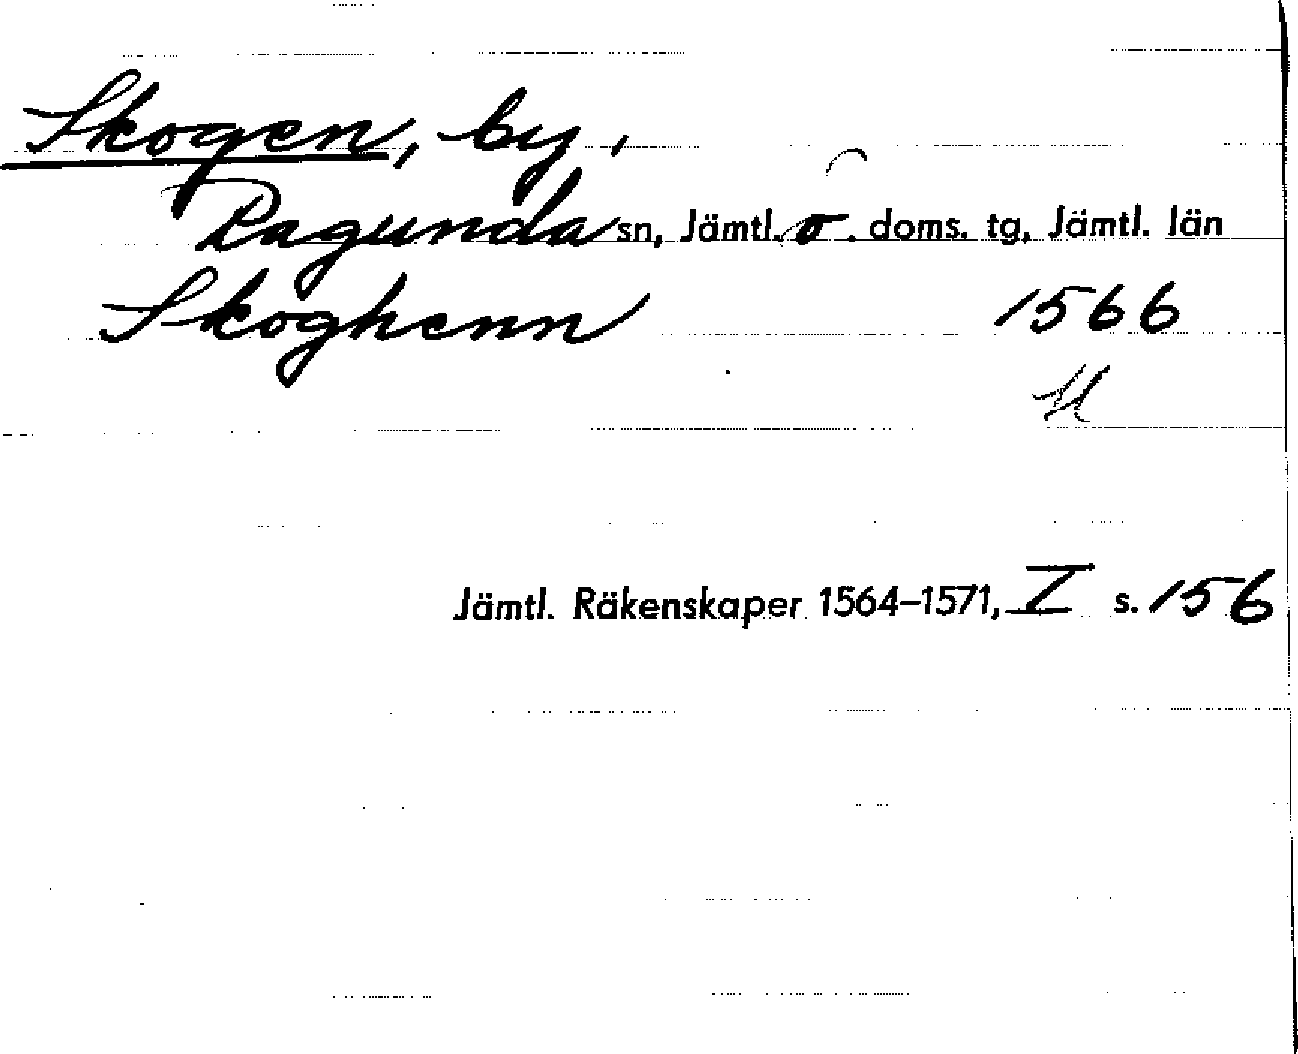 Skogen, by,
Ragunda sn, Jämtl. ö. doms. tg, Jämtl. län
Skoghenn 1566
Jämtl. Räkenskaper 1564–1571, I s. 156